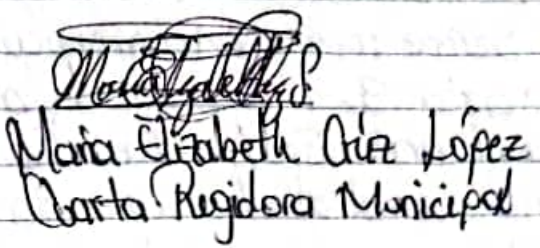 María Elizabeth Cruz López
Cuarta Regidora Municipal